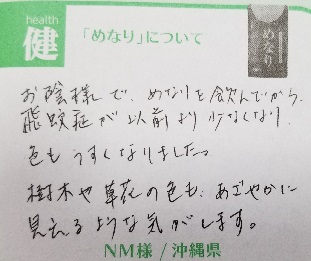 health
健
「めなり」について
めなり
お陰様で、めなりを飲んでから、
飛蚊症が以前より少なくなり、
色もうすくなりました。
樹木や草花の色も、あざやかに
見えるような気がします。
NM様 / 沖縄県